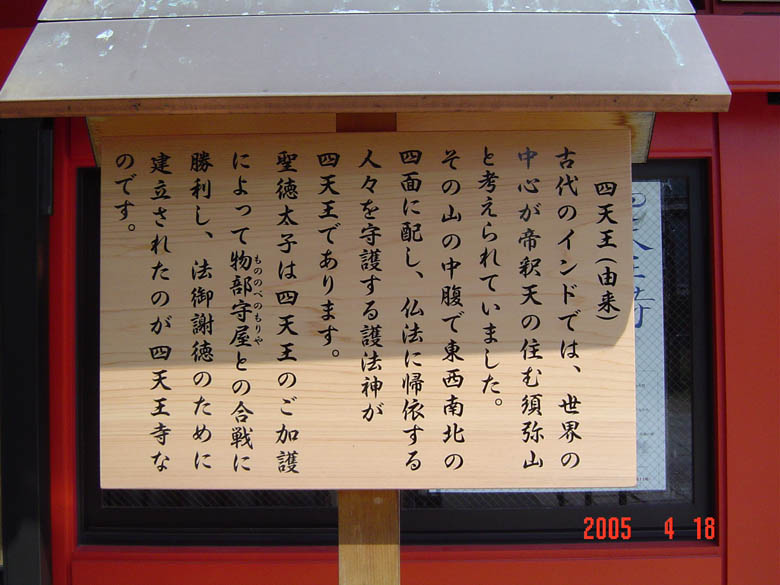 四天王（由来）
古代のインドでは、世界の
中心が帝釈天の住む須弥山
と考えられていました。
その山の中腹で東西南北の
四面に配し、仏法に帰依する
人々を守護する護法神が
四天王であります。
聖徳太子は四天王のご加護
によって物部守屋との合戦に
もののべのもりや
勝利し、法御謝徳のために
建立されたのが四天王寺な
のです。
2005 4 18